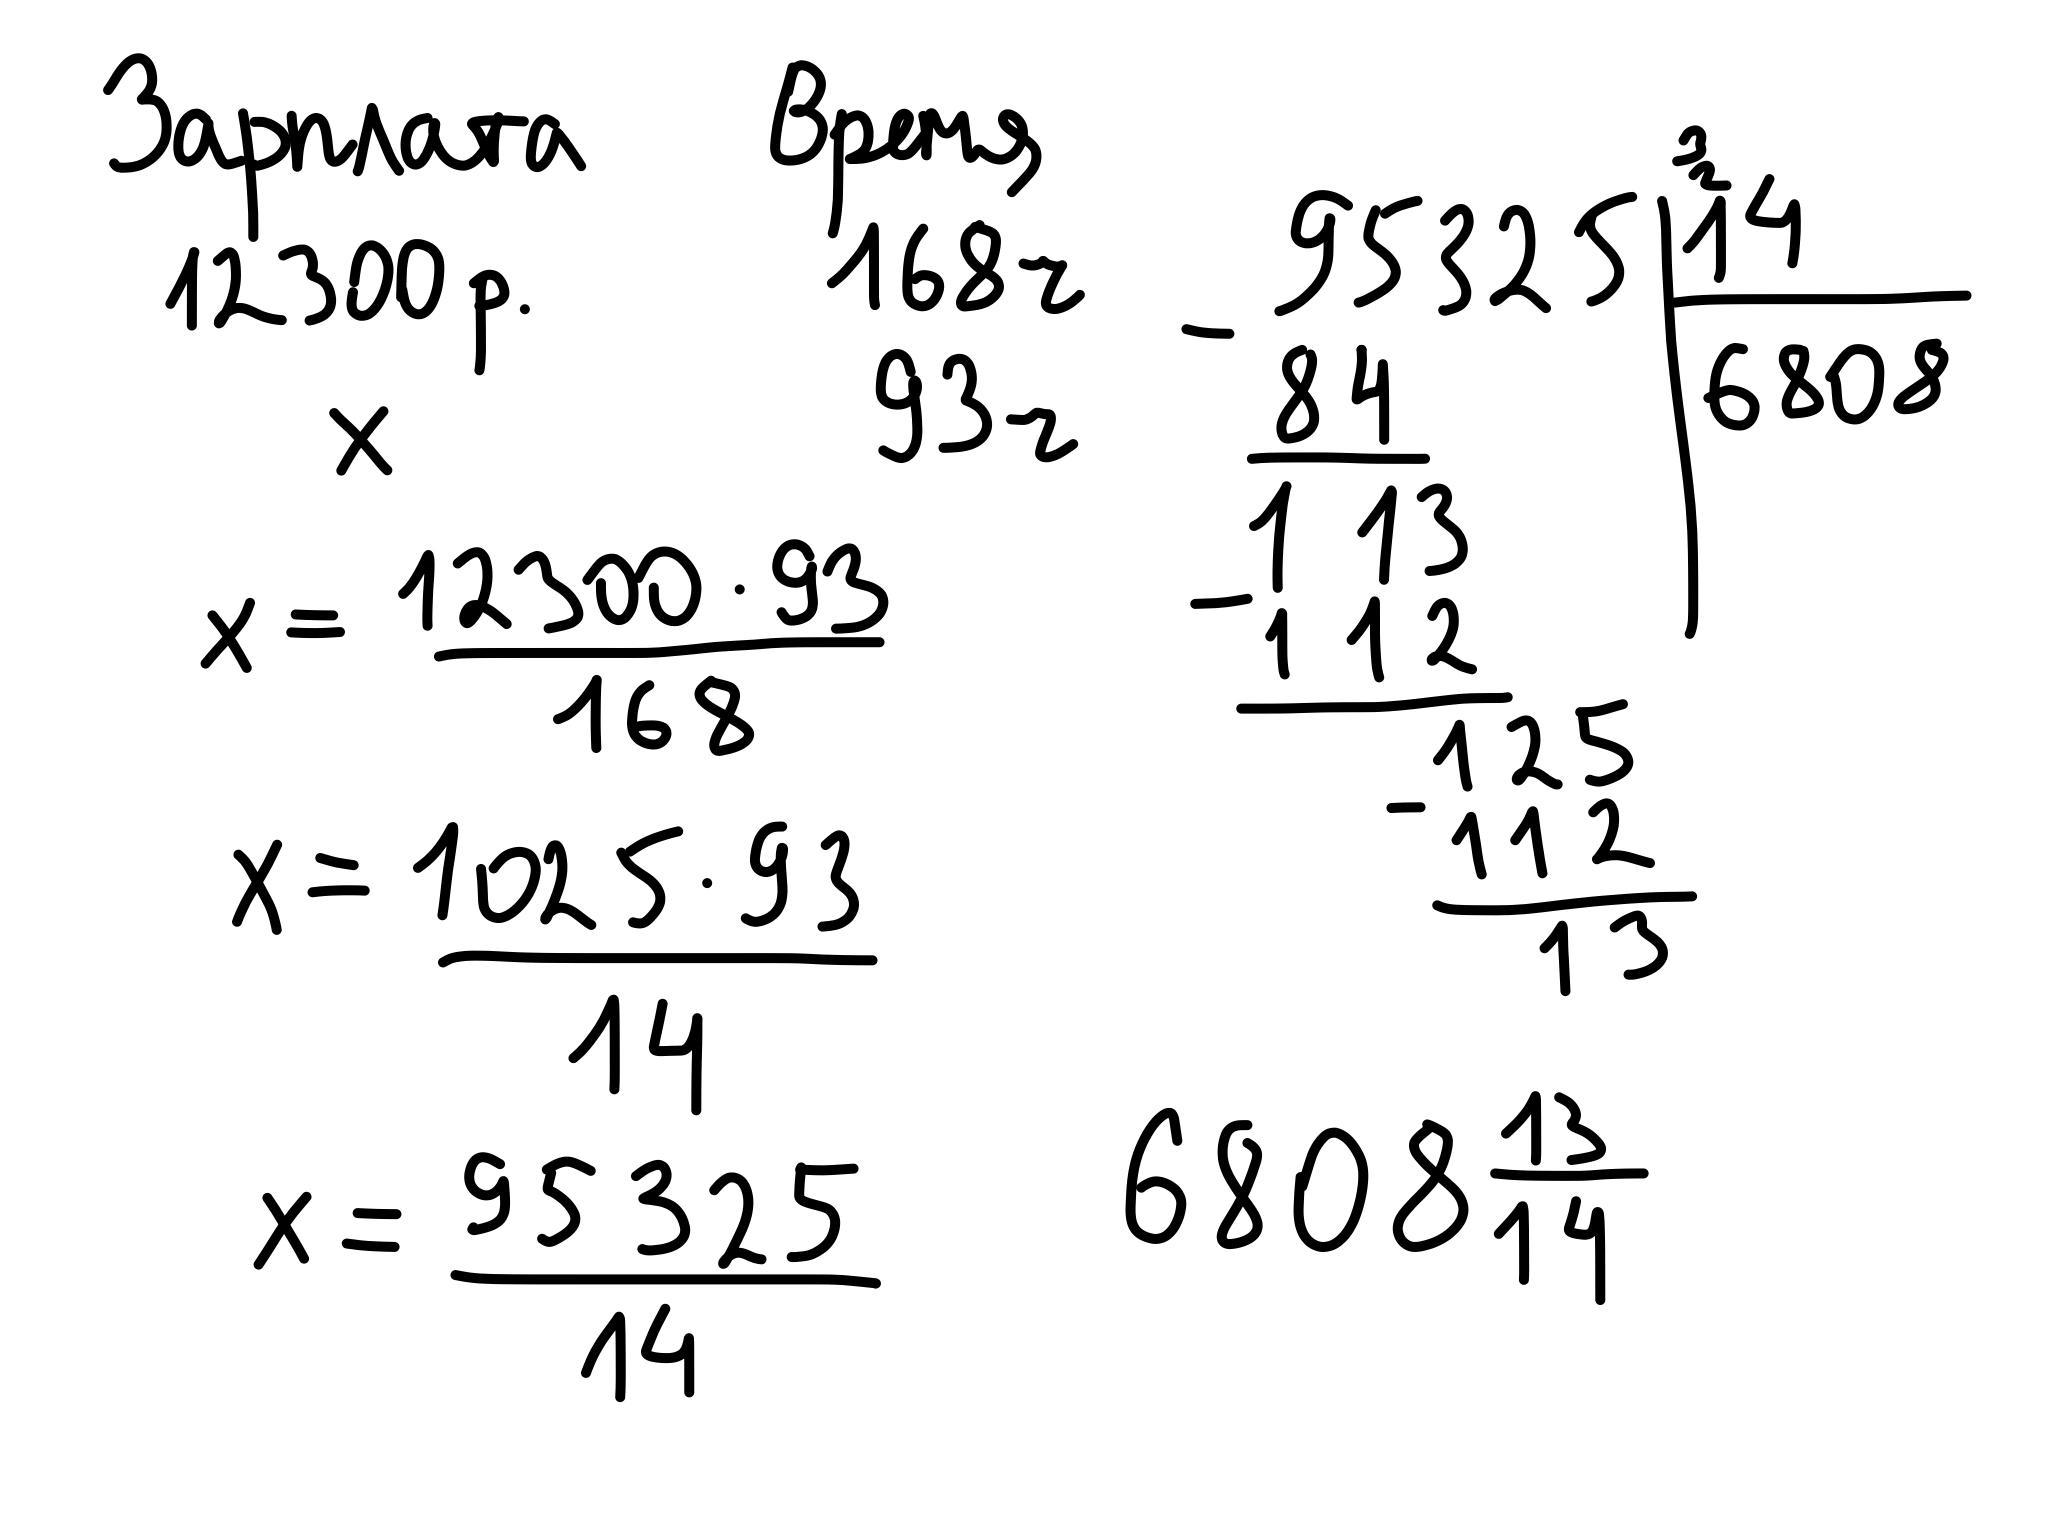 Зарплата Время
12300 р. 168 ч
x 93 ч
x = 12300 · 93
168
x = 1025 · 93
14
x = 95325
14
3
2
95325 14
- 84 6808
113
- 112
125
- 112
13
6808 13
14